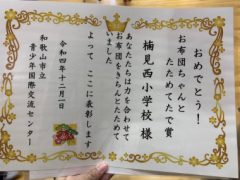 おめでとう！
お布団ちゃんと
たためてたで賞
楠見西小学校 様
あなたたちは力を合わせて
お布団をきちんとたためて
いました
よって ここに表彰します
令和四年十二月一日
和歌山市立
青少年国際交流センター